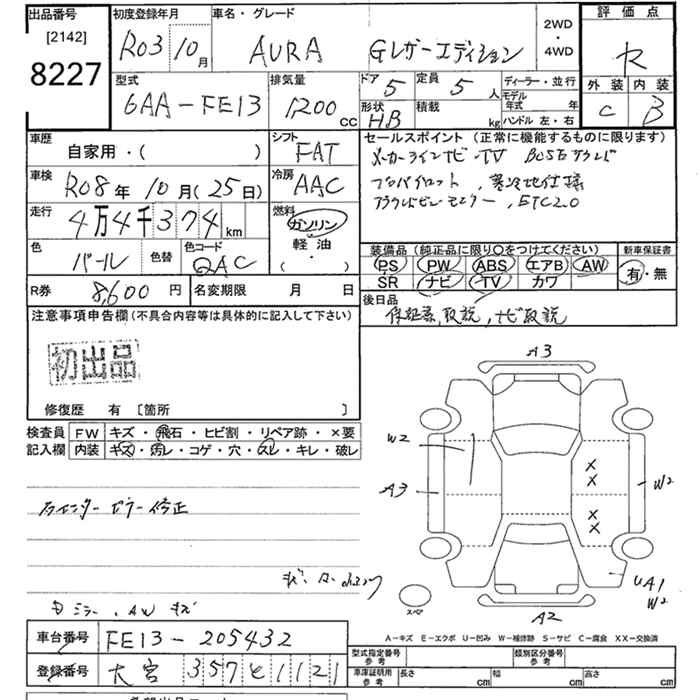 出品番号
[2142]
8227
初度登録年月
R03 10月
車名・グレード
AURA Gレザーエディション
2WD
・
4WD
評価点
R
外装 内装
C B
型式
6AA-FE13
排気量
1200 CC
ドア 5
定員 5 人
形状 HB
積載 kg
ディーラー・並行
モデル年式 年
ハンドル 左・右
車歴
自家用・( )
シフト
FAT
車検
R08年 10月(25日)
冷房
AAC
走行
4万4千374km
燃料
ガソリン
軽油
( ・ )
色
パール
色替
色コード
QAC
R券 8,600円
名変期限 月 日
セールスポイント (正常に機能するものに限ります)
メーカーラインナビ・TV BOSEサウンド
プロパイロット、寒冷地仕様
アラウンドビューモニター、ETC2.0
装備品 (純正品に限り○をつけてください)
PS PW ABS エアB AW
SR ナビ TV カワ
新車保証書
有・無
後日品
保証書、取説、ナビ取説
注意事項申告欄(不具合内容等は具体的に記入して下さい)
初出品
修復歴 有 [箇所 ]
検査員記入欄
FW キズ・飛石・ヒビ割・リペア跡・×要
内装 キズ・汚レ・コゲ・穴・スレ・キレ・破レ
センターピラー修正
ミラー、AWキズ
A3
W2
A3
W2
UA1
W2
A2
スペア
A-キズ E-エクボ U-凹み W-補修跡 S-サビ C-腐食 XX-交換済
車台番号 FE13-205432
登録番号 大宮 357 と 1121
型式指定番号
参考
類別区分番号
参考
車庫証明用
参考
長さ cm 幅 cm 高さ cm